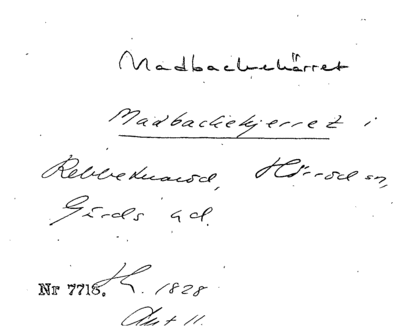 Madbackekärret
Madbackekjerret i
Rebbetuaröd, Hörröd sn,
Gärds hd.
Nr 7715. Th. 1828
Akt 11.